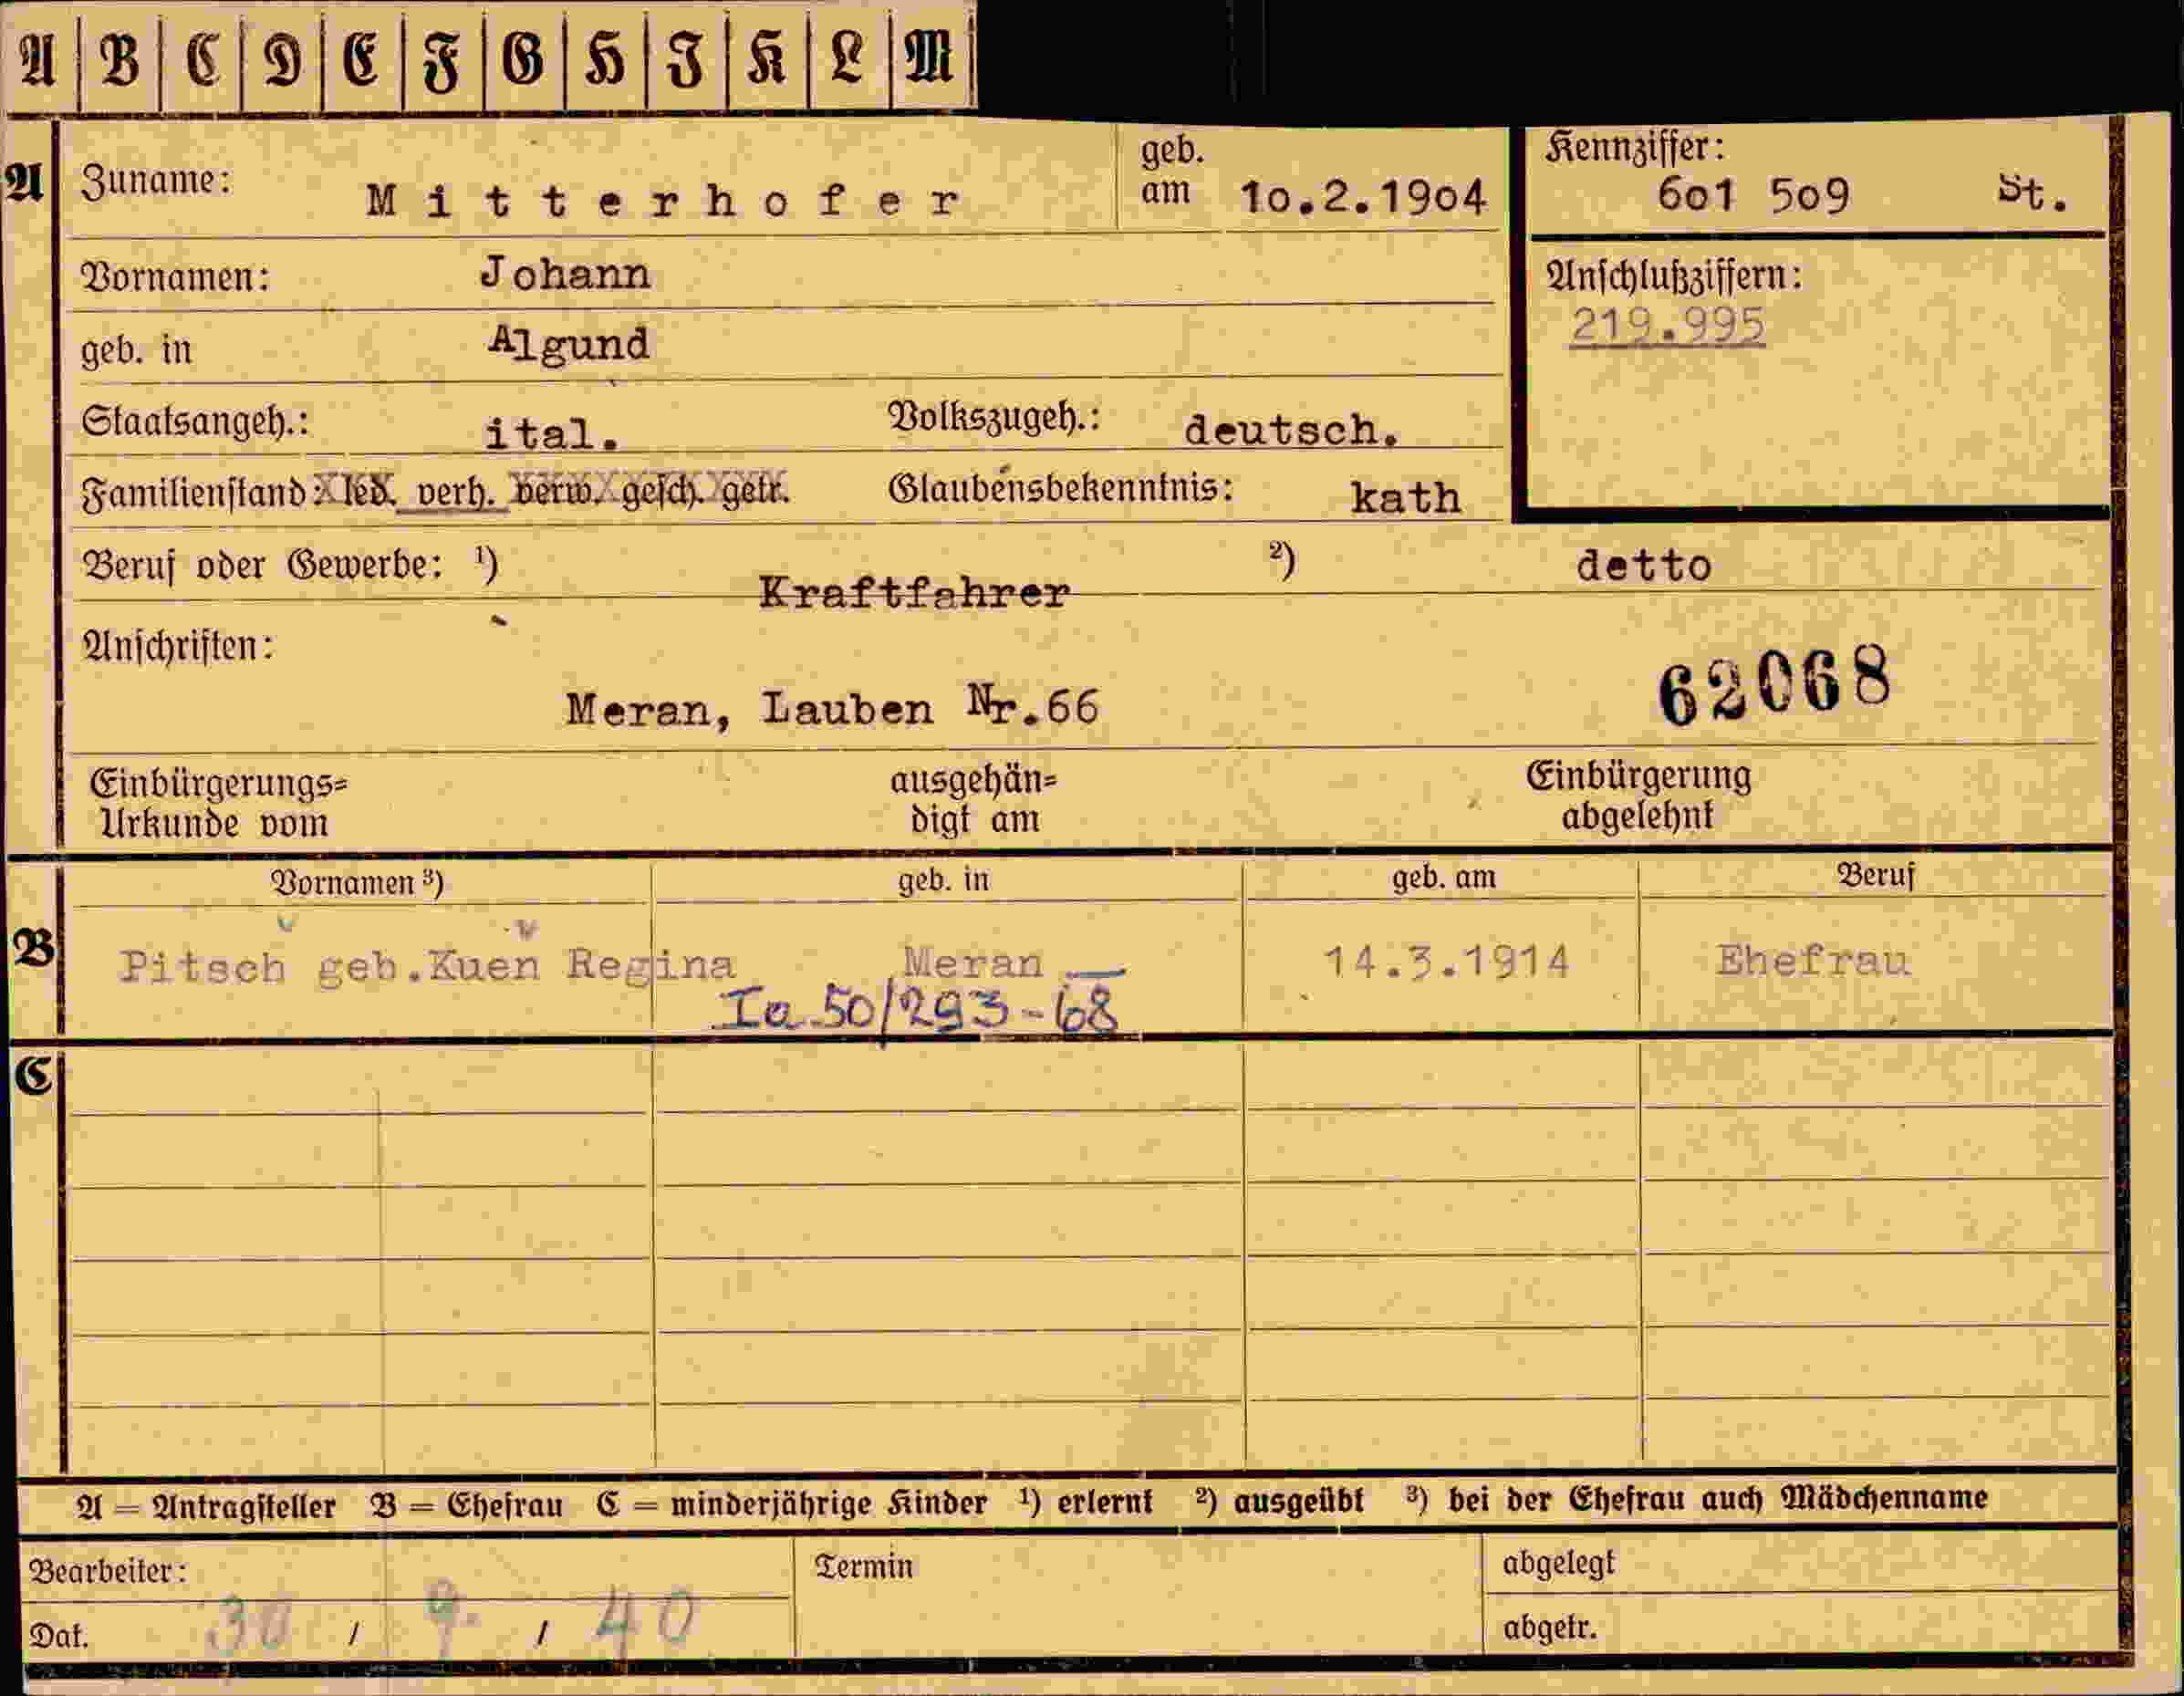 A B C D E F G H I K L M
A Zuname: Mitterhofer geb. am 10.2.1904 Kennziffer: 601 509 St.
Vornamen: Johann Anschlußziffern:
219.995
geb. in Algund
Staatsangeh.: ital. Volkszugeh.: deutsch.
Familienstand: led. verh. verw. gesch. getr. Glaubensbekenntnis: kath
Beruf oder Gewerbe: ¹) Kraftfahrer ²) detto
Anschriften:
Meran, Lauben Nr.66 62068
Einbürgerungs= ausgehän= Einbürgerung
Urkunde vom digt am abgelehnt
Vornamen ³) geb. in geb. am Beruf
B Pitsch geb.Kuen Regina Meran 14.3.1914 Ehefrau
Ia 50/293-68
C
A = Antragsteller B = Ehefrau C = minderjährige Kinder ¹) erlernt ²) ausgeübt ³) bei der Ehefrau auch Mädchenname
Bearbeiter: Termin abgelegt
Dat. 30 / 9. / 40 abgetr.